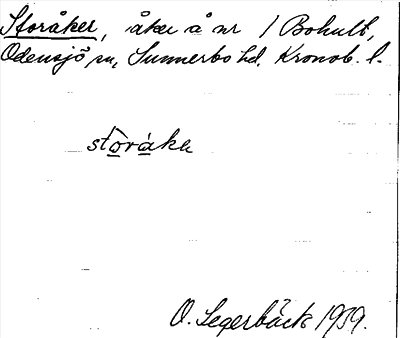 Storåker, åker å nr 1 Bohult,
Odensjö sn, Sunnerbo hd. Kronob. l.
storåkɐ
O. Segerbäck 1939.